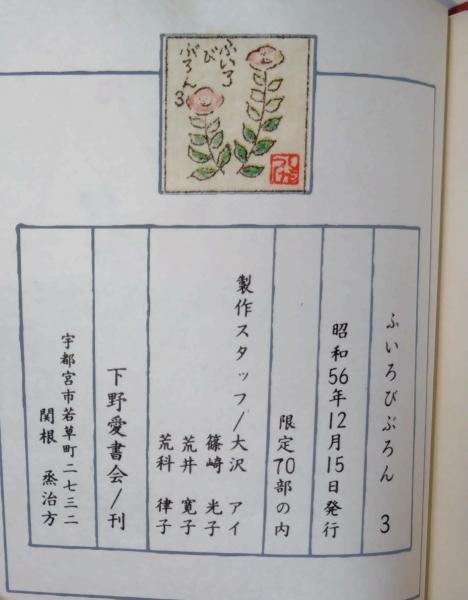 ふいろ
び
ぶろん
3
ふいろびぶろん 3
昭和56年12月15日発行
限定70部の内
製作スタッフ/大沢 アイ
篠崎 光子
荒井 寛子
荒科 律子
下野愛書会/刊
宇都宮市若草町二七三二
関根 烝治方